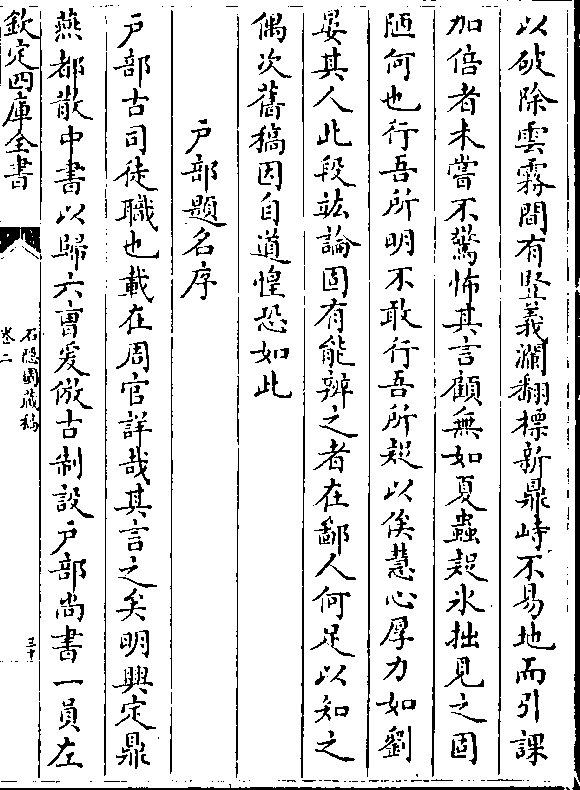 以破除雲霧間有豎義瀾翻標新鼎峙不易地而引課
加倍者未嘗不驚怖其言顧無如夏蟲疑氷拙見之固
陋何也行吾所明不敢行吾所疑以俟慧心厚力如劉
晏其人此段竑論固有能辨之者在鄙人何足以知之
偶次舊稿因自道惶恐如此
戶部題名序
戶部古司徒職也載在周官詳哉其言之矣明興定鼎
燕都散中書以歸六曹爰倣古制設戶部尚書一員左
欽定四庫全書
石隱園藏稿
卷二
三十